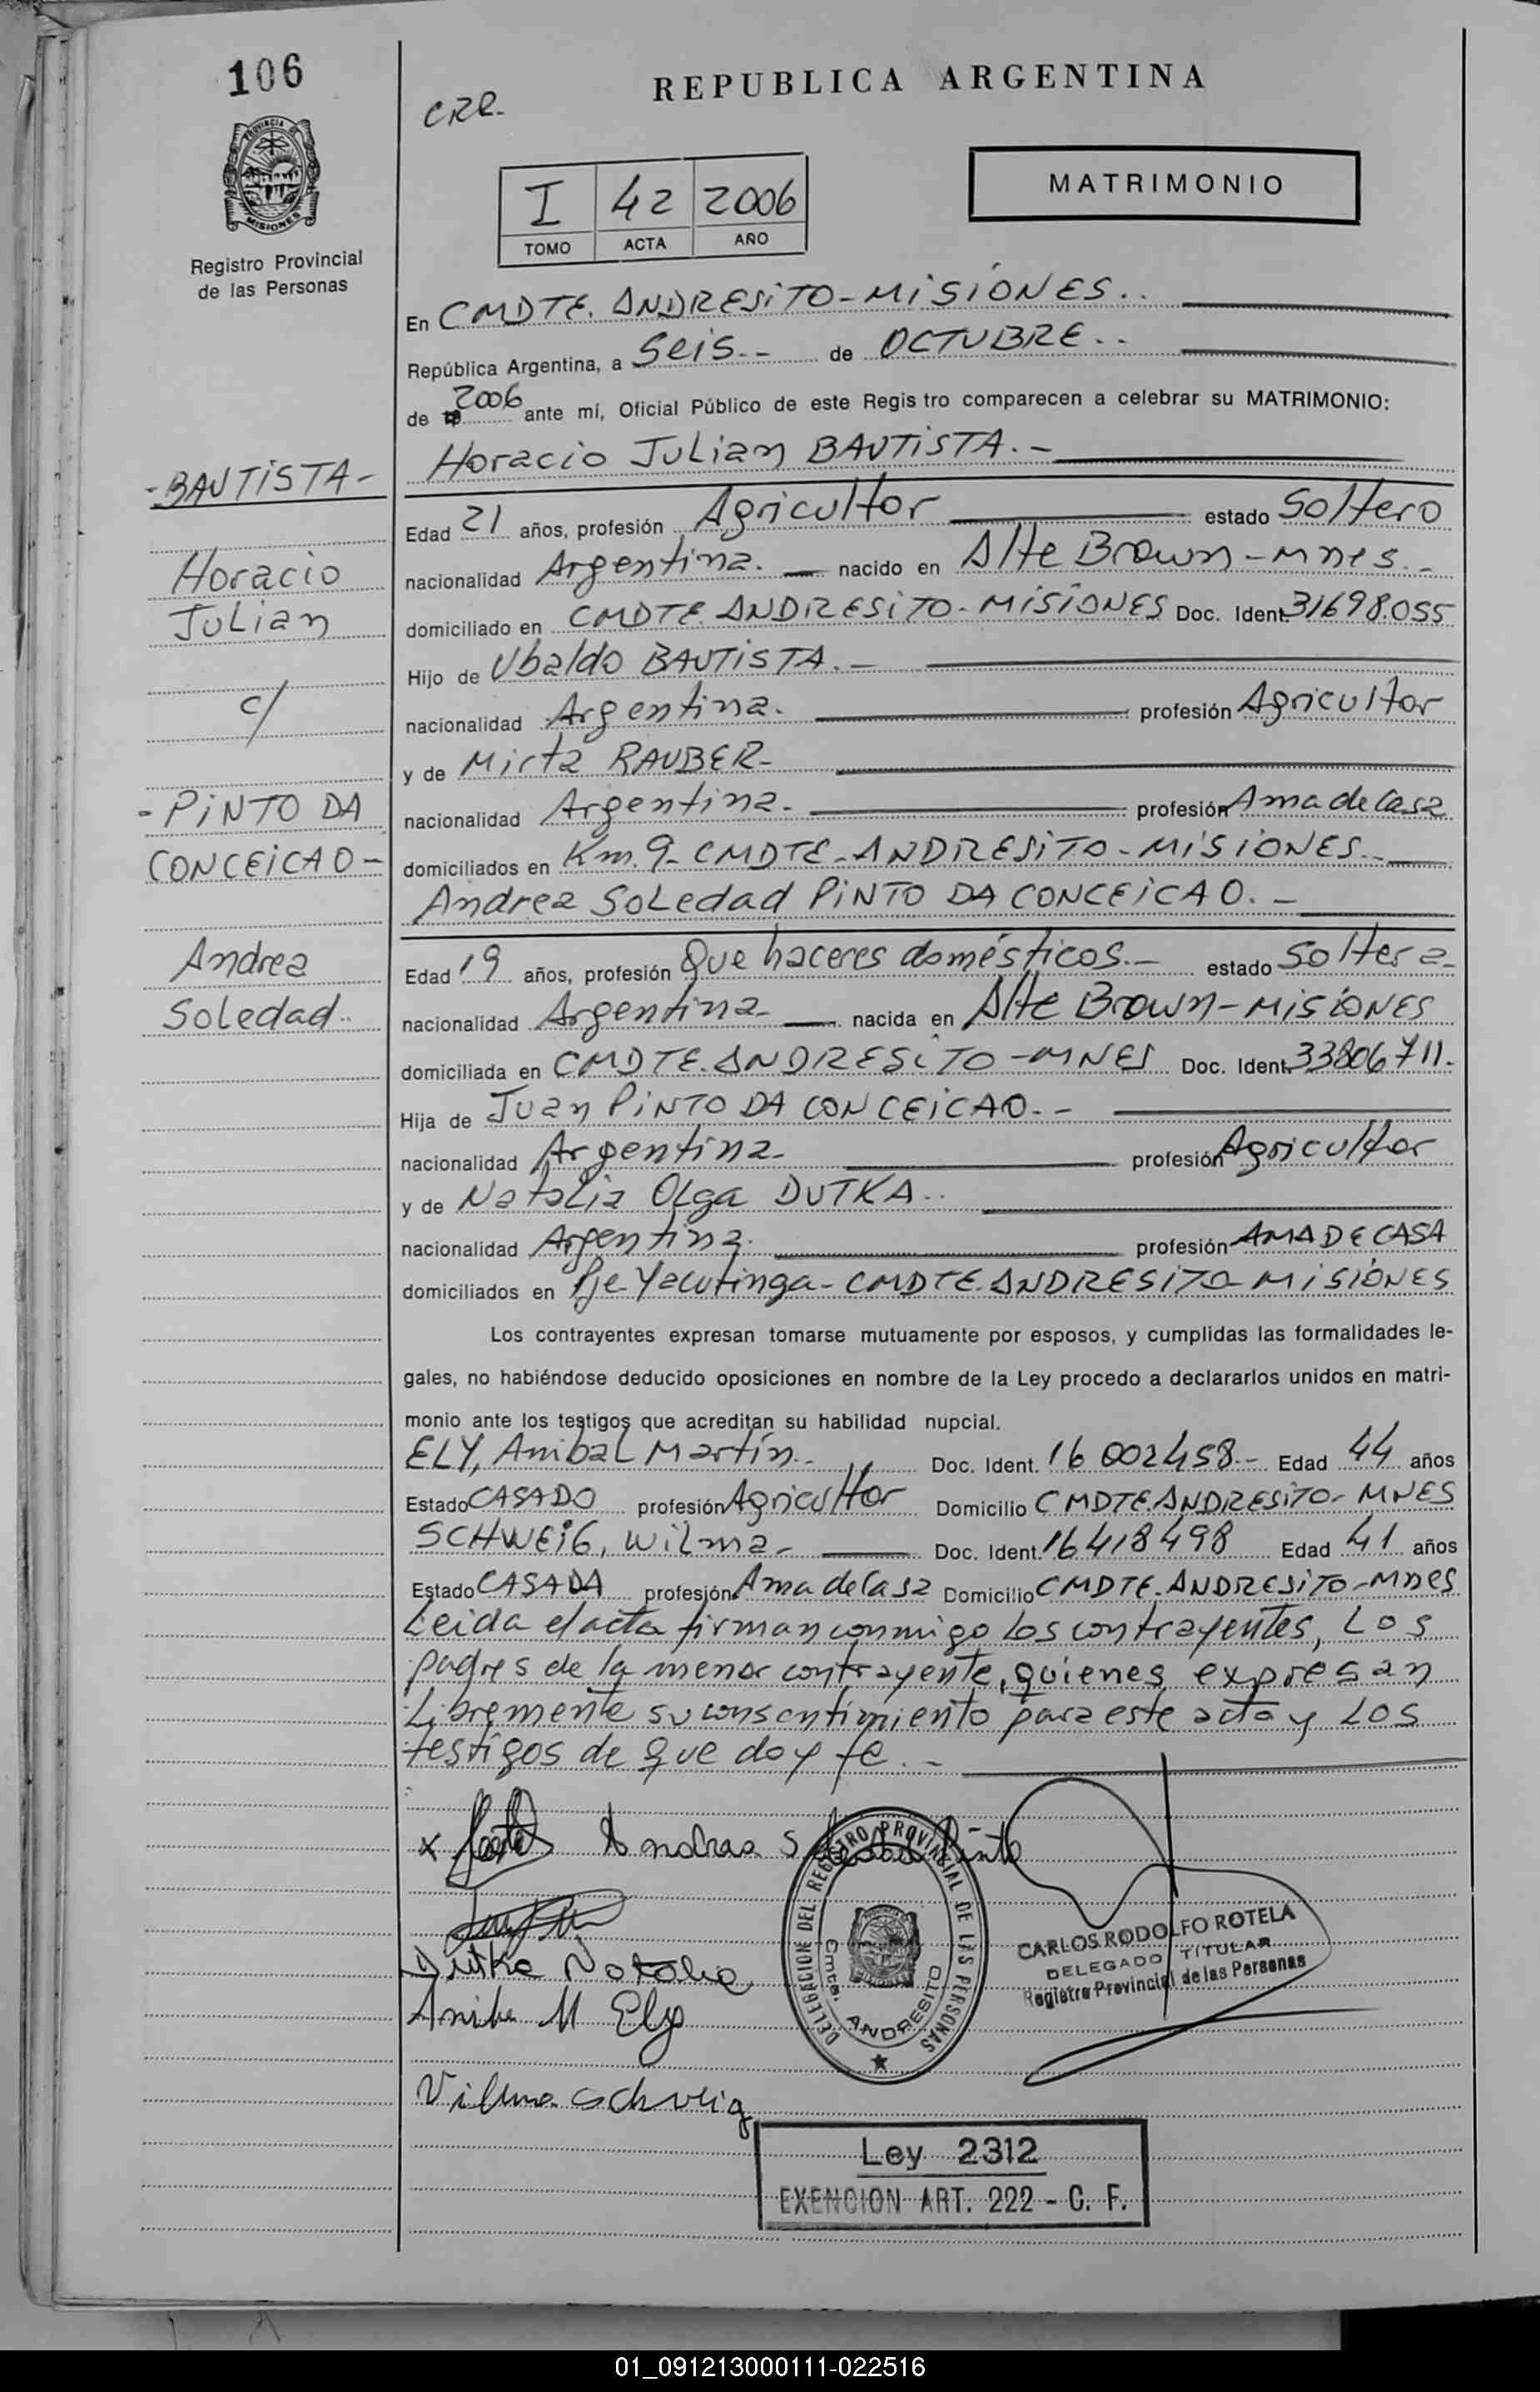 106
CRR-
REPUBLICA ARGENTINA
MATRIMONIO
I 42 2006
TOMO ACTA AÑO
PROVINCIA DE
MISIONES
Registro Provincial
de las Personas
En CMDTE. ANDRESITO-MISIONES..
República Argentina, a Seis.- de OCTUBRE..
de 2006 ante mí, Oficial Público de este Regis tro comparecen a celebrar su MATRIMONIO:
Horacio Julian BAUTISTA.-
-BAUTISTA-
Edad 21 años, profesión Agricultor estado Soltero
Horacio
nacionalidad Argentina. nacido en Alte Brown-Mnes.-
Julian
domiciliado en CMDTE. ANDRESITO-MISIONES Doc. Ident. 31698.055
Hijo de Ubaldo BAUTISTA.-
c/
nacionalidad Argentina. profesión Agricultor
y de Mirta RAUBER-
-PINTO DA
nacionalidad Argentina. profesión Ama de Casa
CONCEICAO-
domiciliados en Km. 9- CMDTE-ANDRESITO-MISIONES.-
Andrea Soledad PINTO DA CONCEICAO.-
Andrea
Edad 19 años, profesión Que haceres domésticos.- estado Soltera-
Soledad..
nacionalidad Argentina- nacida en Alte Brown-MISIONES
domiciliada en CMDTE.ANDRESITO-MNES Doc. Ident. 33806711.
Hija de Juan PINTO DA CONCEICAO.-
nacionalidad Argentina- profesión Agricultor
y de Natalia Olga DUTKA..
nacionalidad Argentina. profesión AMA DE CASA
domiciliados en Pje Yacutinga-CMDTE.ANDRESITO-MISIONES
Los contrayentes expresan tomarse mutuamente por esposos, y cumplidas las formalidades le-
gales, no habiéndose deducido oposiciones en nombre de la Ley procedo a declararlos unidos en matri-
monio ante los testigos que acreditan su habilidad nupcial.
ELY, Anibal Martín.- Doc. Ident. 16 002458- Edad 44 años
Estado CASADO profesión Agricultor Domicilio CMDTE.ANDRESITO-MNES
SCHWEIG, Wilma- Doc. Ident. 16418498 Edad 41 años
Estado CASADA profesión Ama de Casa Domicilio CMDTE.ANDRESITO-Mnes
Leida el acta firman conmigo los contrayentes, Los
padres de la menor contrayente, quienes expresan
Libremente su consentimiento para este acto y LOS
testigos de que doy fe.-
x Andrea Soledad Pinto
DELEGACION DEL REGISTRO PROVINCIAL DE LAS PERSONAS
Cmte. ANDRESITO
CARLOS RODOLFO ROTELA
DELEGADO TITULAR
Registro Provincial de las Personas
Dutka Natalia
Aniba M Ely
Vilma Schveig
Ley 2312
EXENCION ART. 222 - C. F.
01_091213000111-022516